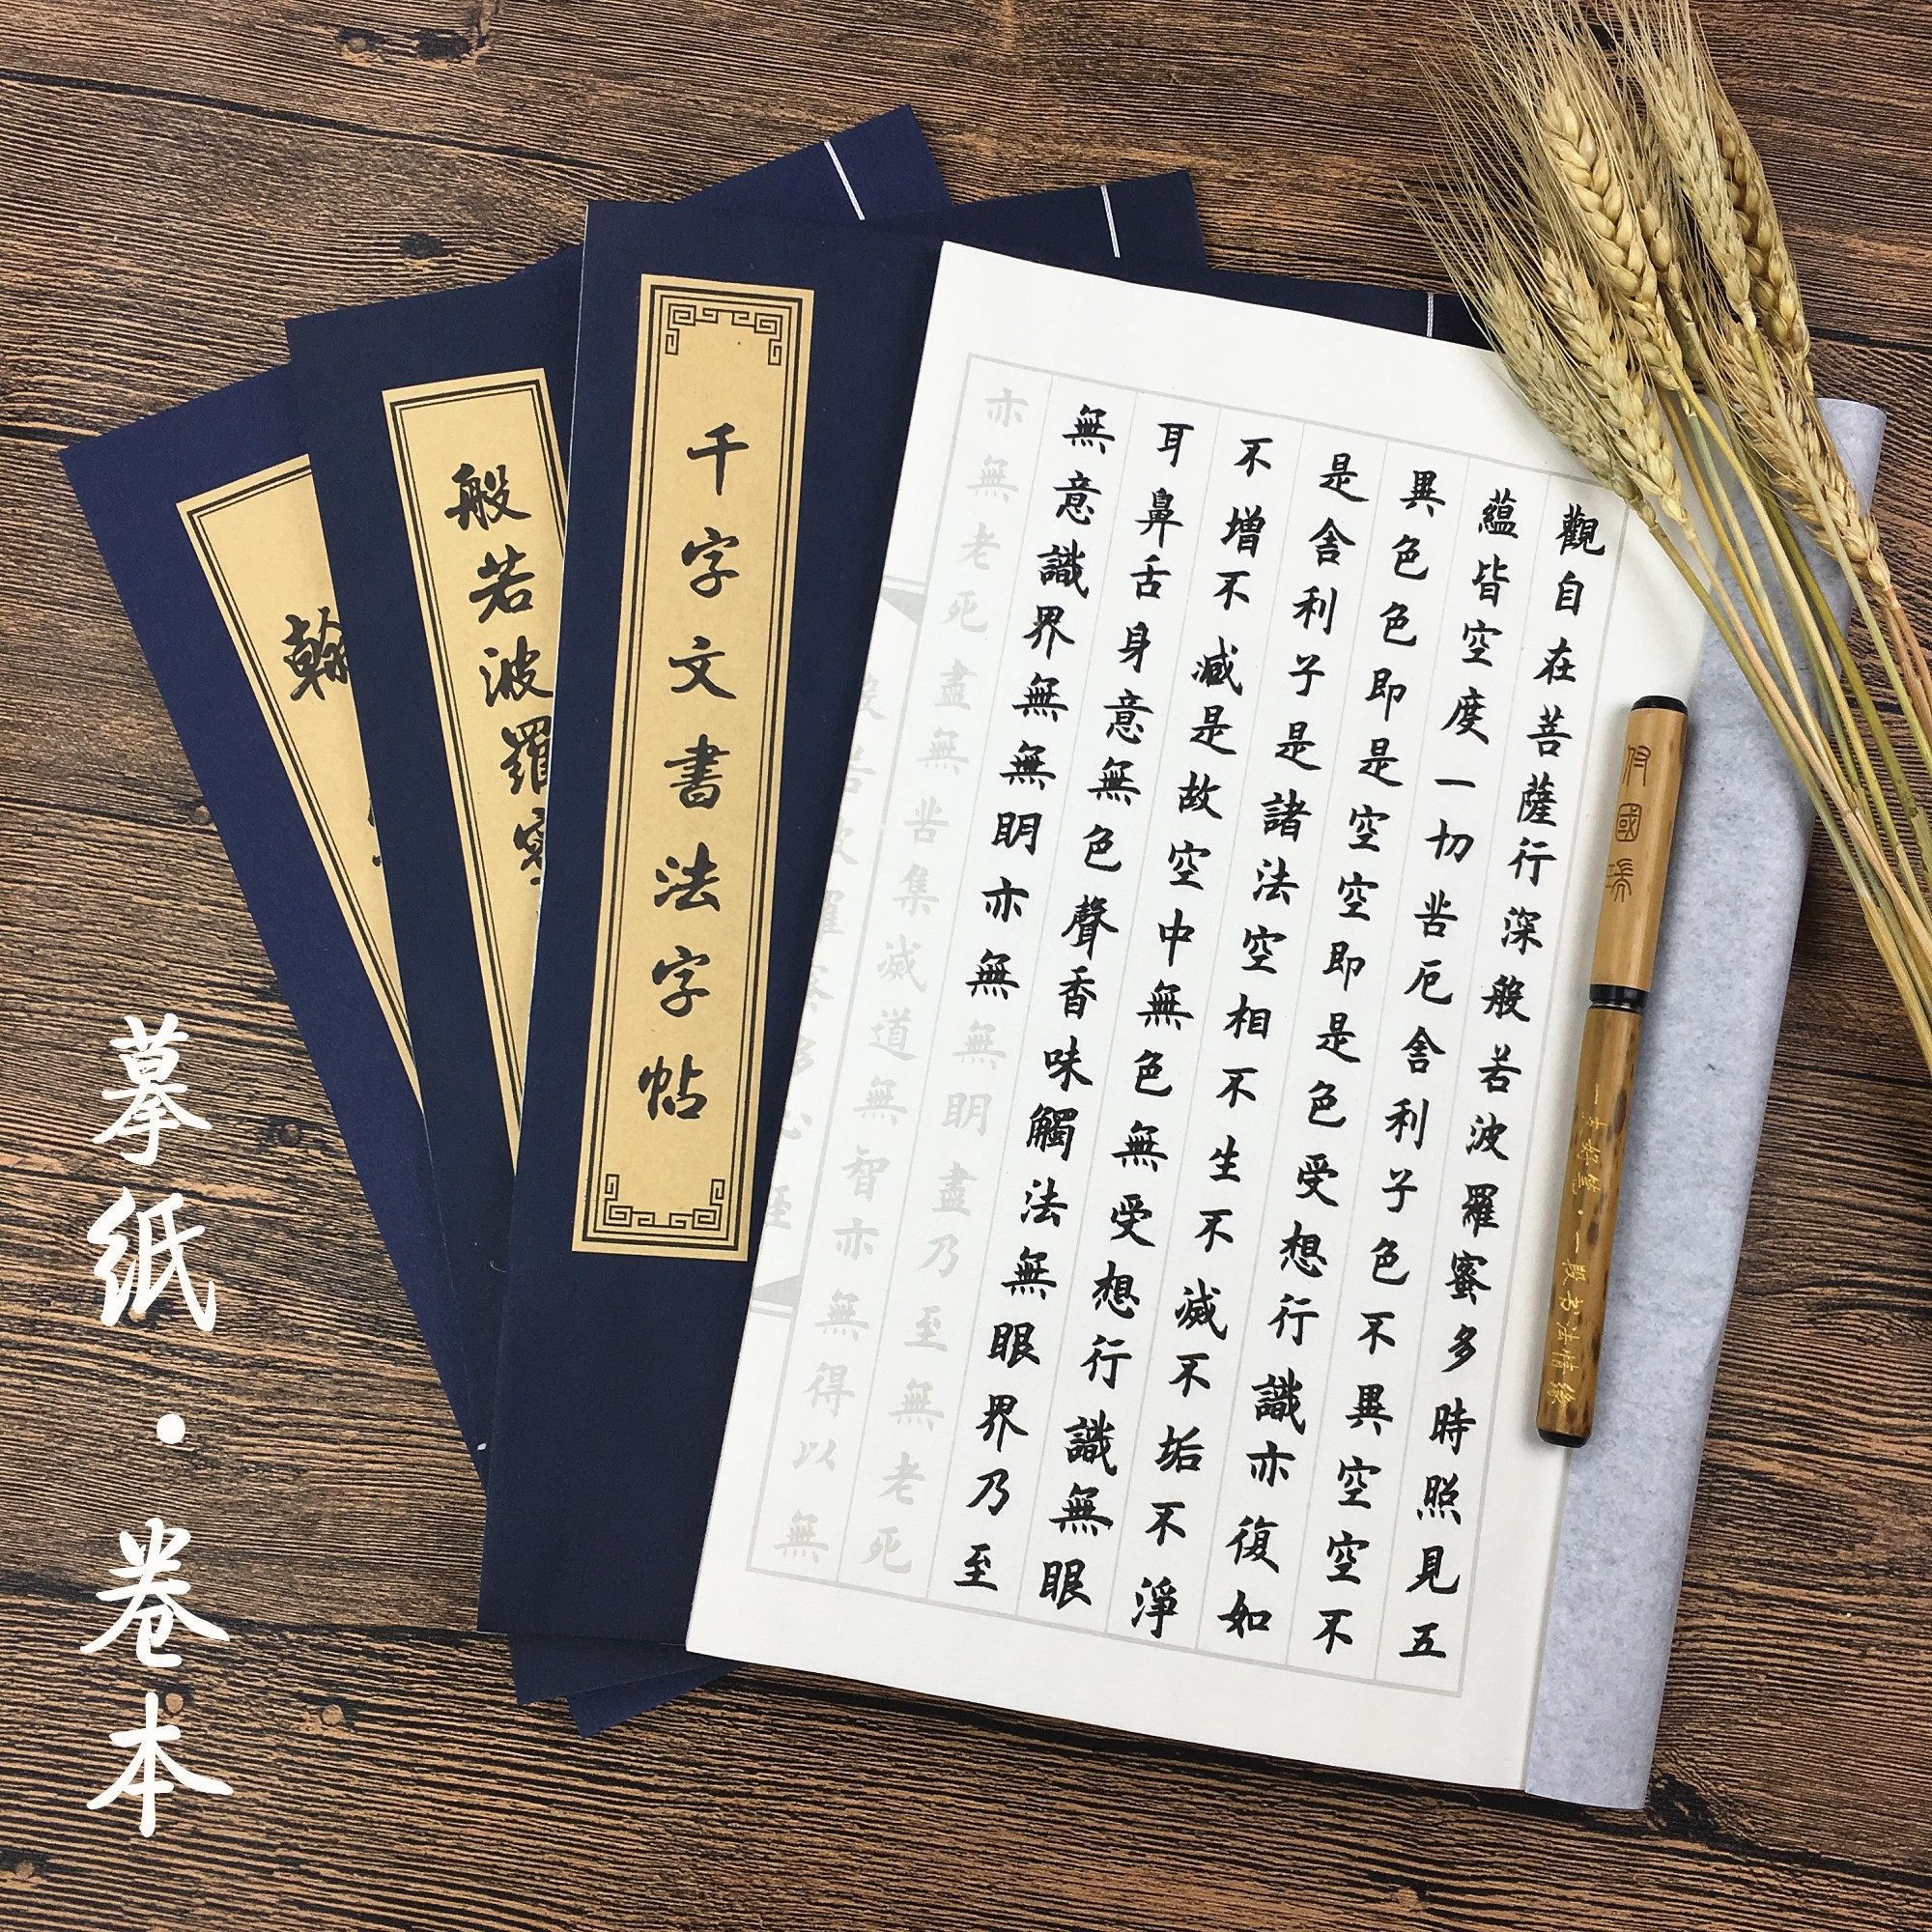 觀自在菩薩行深般若波羅蜜多時照見五
蘊皆空度一切苦厄舍利子色不異空空不
異色色即是空空即是色受想行識亦復如
是舍利子是諸法空相不生不滅不垢不淨
不增不減是故空中無色無受想行識無眼
耳鼻舌身意無色聲香味觸法無眼界乃至
無意識界無無明亦無無明盡乃至無老死
亦無老死盡無苦集滅道無智亦無得以無
千字文書法字帖
般若波羅蜜
翰
一支好笔·一段书法情缘
摹纸·卷本